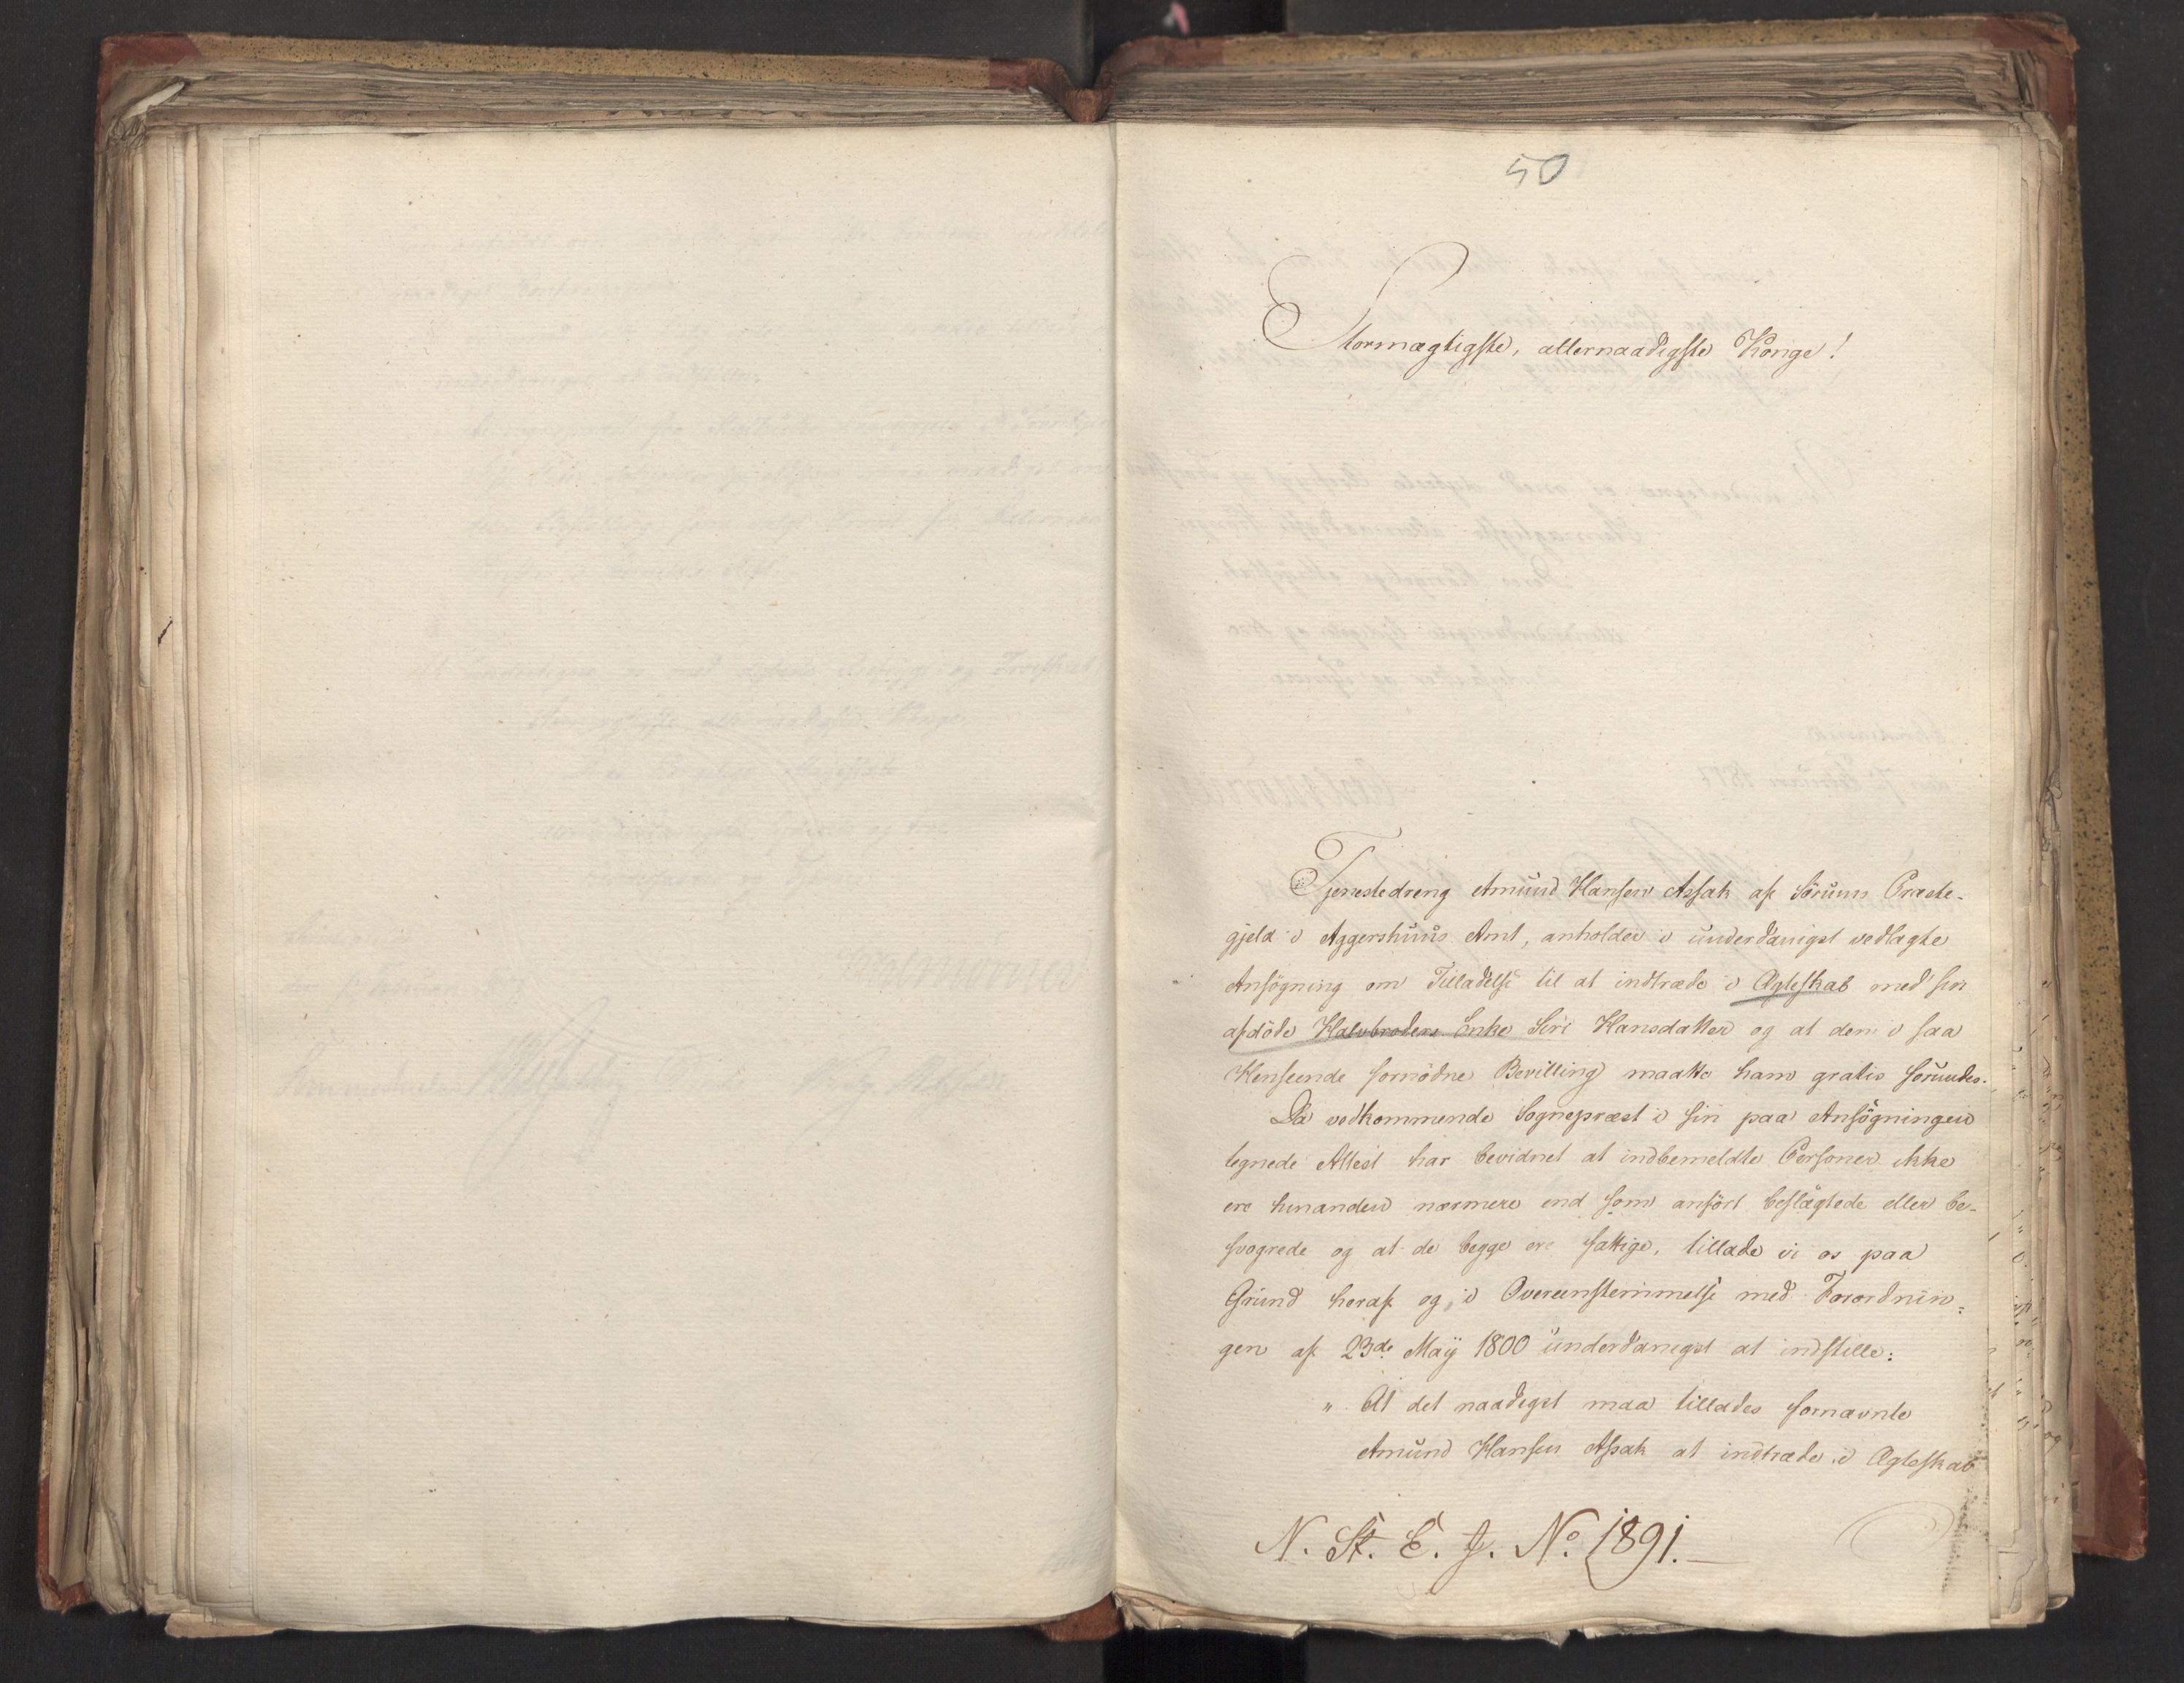 50
Stormægtigste, allernaadigste Konge!
Tjenestedreng Amund Hansen Assak af Sörum Præste-
gjeld i Aggershuus Amt, anholder i underdanigst vedlagte
Ansögning om Tilladelse til at indtræde i Ægteskab med sin
afdöde Halvbroders Enke Siri Hansdatter og at den i saa
Henseende fornödne Bevilling maatte ham gratis forundes.
Da vedkommende Sognepræst i sin paa Ansögningen
tegnede Attest har bevidnet at indbemeldte Personer ikke
ere hinanden nærmere end som anfört beslægtede eller be-
svogrede og at de begge ere fattige, tillade vi os paa
Grund heraf og, i Overeensstemmelse med Forordnin-
gen af 23de May 1800 underdanigst at indstille:
" At det naadigst maa tillades fornævnte
Amund Hansen Assak at indtræde i Ægteskab
N. St. E. J. No. 1891.